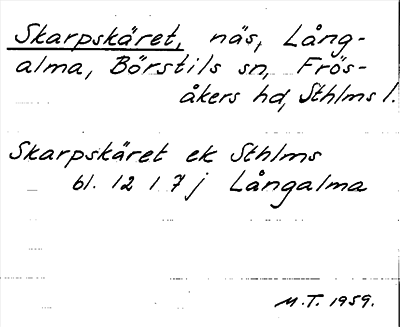 Skarpskäret, näs, Lång-
alma, Börstils sn, Frös-
åkers hd, Sthlms l.
Skarpskäret ek Sthlms
bl. 12 1 7 j Långalma
M.T. 1959.